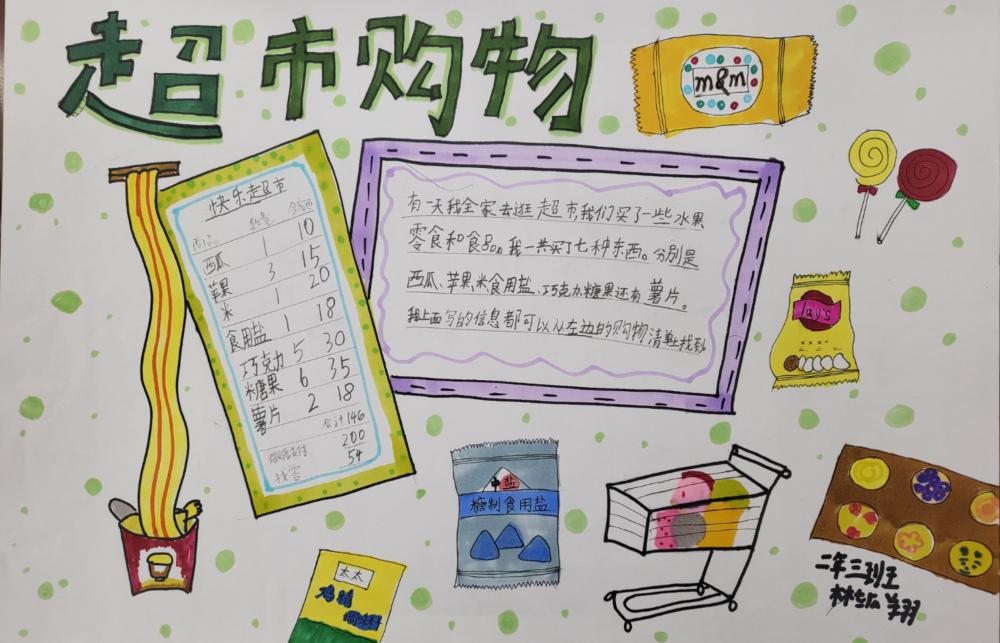 超市购物
m&m
快乐超市
商品 数量 金额
西瓜 1 10
苹果 3 15
米 1 20
食用盐 1 18
巧克力 5 30
糖果 6 35
薯片 2 18
合计146
200
找零 54
有一天我全家去逛超市我们买了一些水果
零食和食品。我一共买了七种东西。分别是
西瓜、苹果、米食用盐、巧克力、糖果还有薯片。
我上面写的信息都可以从左边的购物清单上找到
lay's
中盐
糖制食用盐
太太
鸡精
调料
二年三班